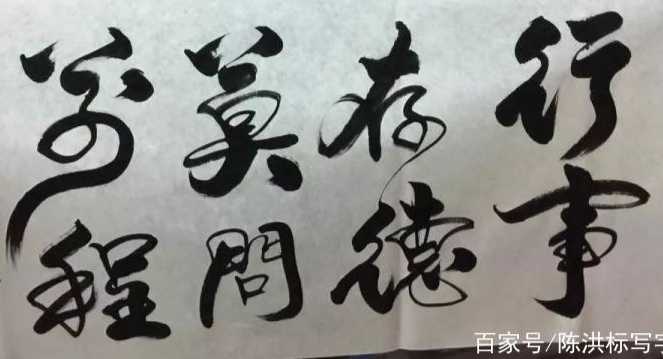 行事
存德
莫問
前程
百家号/陈洪标写字